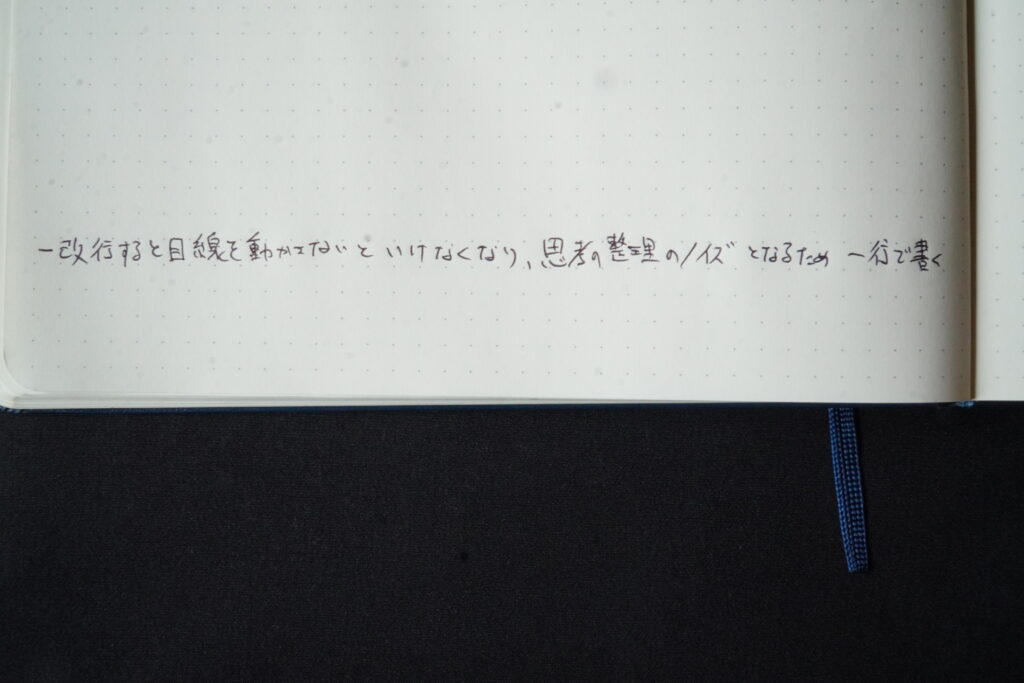 - 改行すると目線を動かさないといけなくなり、思考の整理のノイズとなるため一行で書く